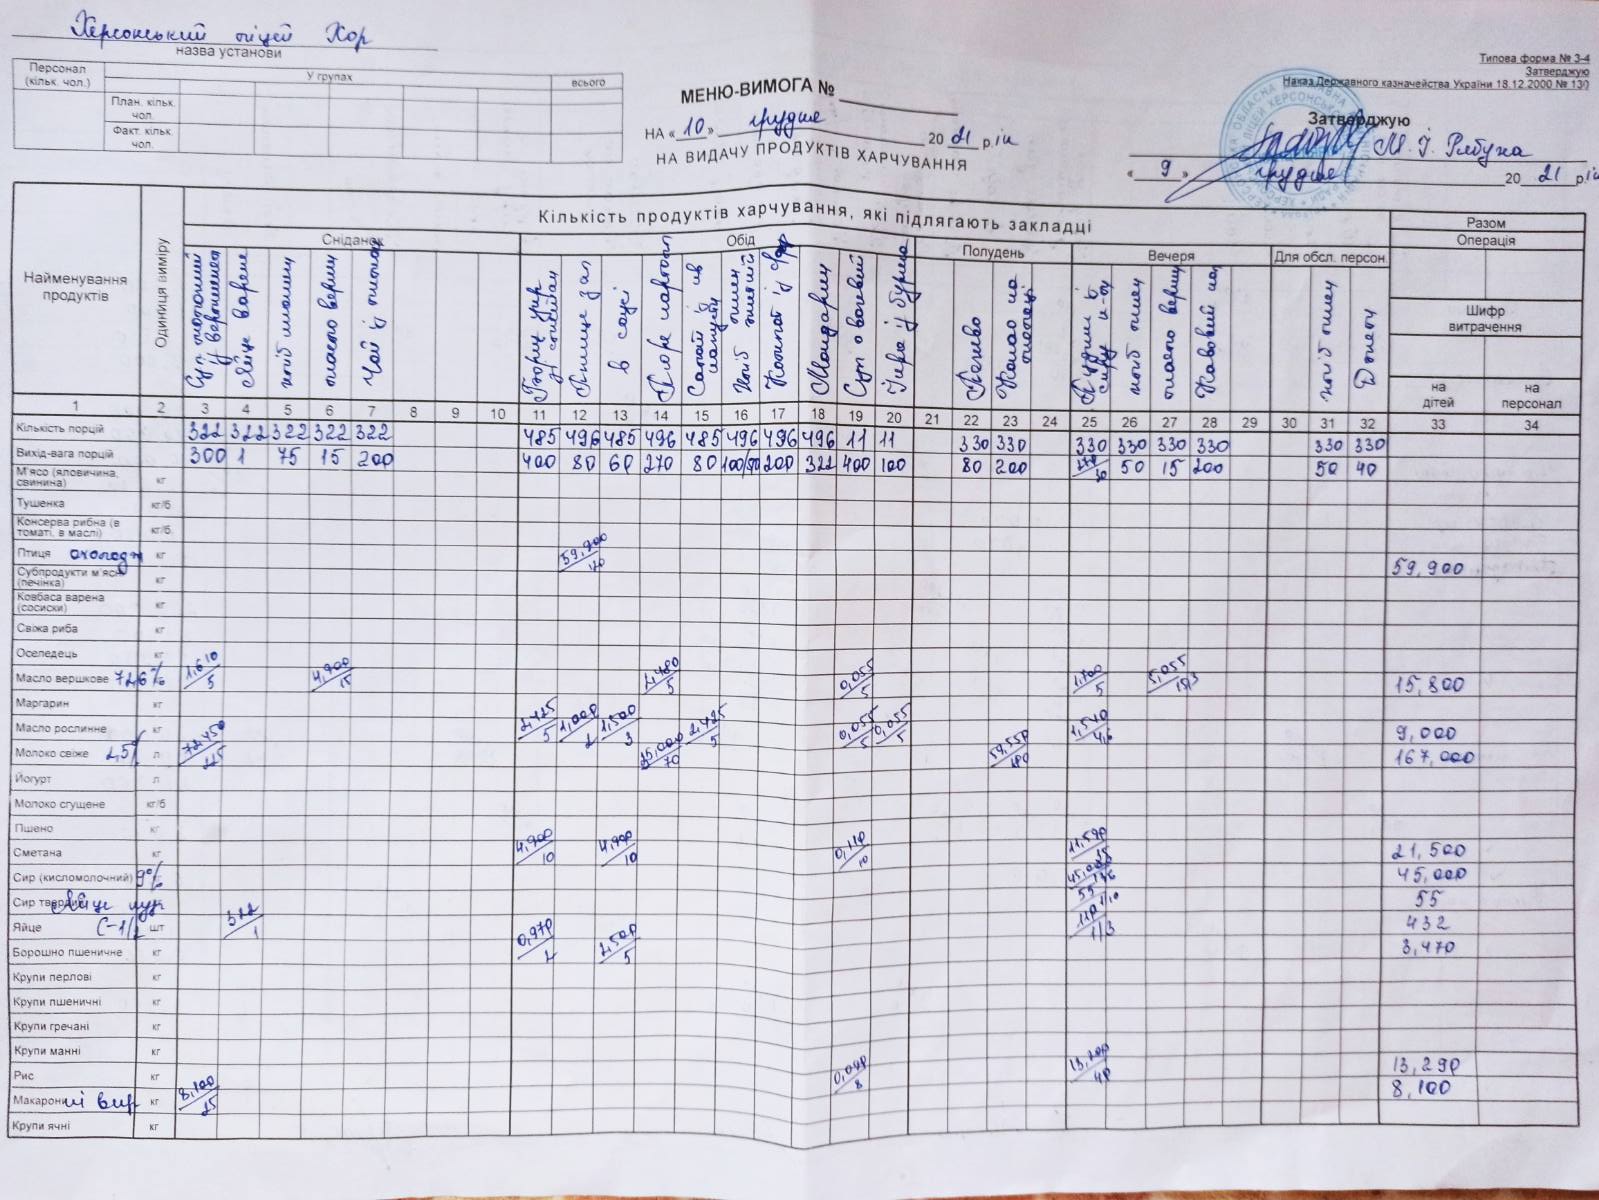 Херсонський ліцей ХОР
назва установи
Персонал (кільк. чол.) У групах всього
План. кільк. чол.
Факт. кільк. чол.
МЕНЮ-ВИМОГА №
НА « 10 » грудня 20 21 р.ік
НА ВИДАЧУ ПРОДУКТІВ ХАРЧУВАННЯ
Типова форма № З-4
Затверджую
Наказ Державного казначейства України 18.12.2000 № 130
Затверджую
« 9 » грудня 20 21 р.ік
Найменування продуктів
Одиниця виміру
Кількість продуктів харчування, які підлягають закладці
Разом
Сніданок Обід Полудень Вечеря Для обсл. персон. Операція
Шифр витрачення
на дітей на персонал
Яйце варене
масло вершк
Пюре картоп
Мандарин
Печиво
Какао на молоці
1 2 3 4 5 6 7 8 9 10 11 12 13 14 15 16 17 18 19 20 21 22 23 24 25 26 27 28 29 30 31 32 33 34
Кількість порцій 322 322 322 322 322 485 496 485 496 485 496 496 496 11 11 330 330 330 330 330 330 330 330
Вихід-вага порцій 300 1 75 15 200 400 80 60 270 80 100/50 200 322 400 100 80 200 50 15 200 50 40
М'ясо (яловичина, свинина) кг
Тушенка кг/б
Консерва рибна (в томаті, в маслі) кг/б
Птиця охолодж кг 59,900/120 59,900
Субпродукти м'ясні (печінка) кг
Ковбаса варена (сосиски) кг
Свіжа риба кг
Оселедець кг
Масло вершкове 72,6% 1,610/5 4,900/15 2,480/5 0,055/5 1,700/5 5,055/15,3 15,800
Маргарин кг
Масло рослинне кг 2,425/5 1,000/2 1,500/3 2,425/5 0,055/5 0,055/5 1,540/4,6 9,000
Молоко свіже 2,5% л 72,450/225 35,000/70 59,550/180 167,000
Йогурт л
Молоко сгущене кг/б
Пшено кг
Сметана кг 4,900/10 4,900/10 0,110/10 11,590/35 21,500
Сир (кисломолочний) 9% 45,000/136 45,000
Сир твердий 55 1/10 55
Яйце С-1 шт 322/1 110 1/3 432
Борошно пшеничне кг 0,970/2 2,500/5 3,470
Крупи перлові кг
Крупи пшеничні кг
Крупи гречані кг
Крупи манні кг
Рис кг 0,090/8 13,200/40 13,290
Макарони кг 8,100/25 8,100
Крупи ячні кг